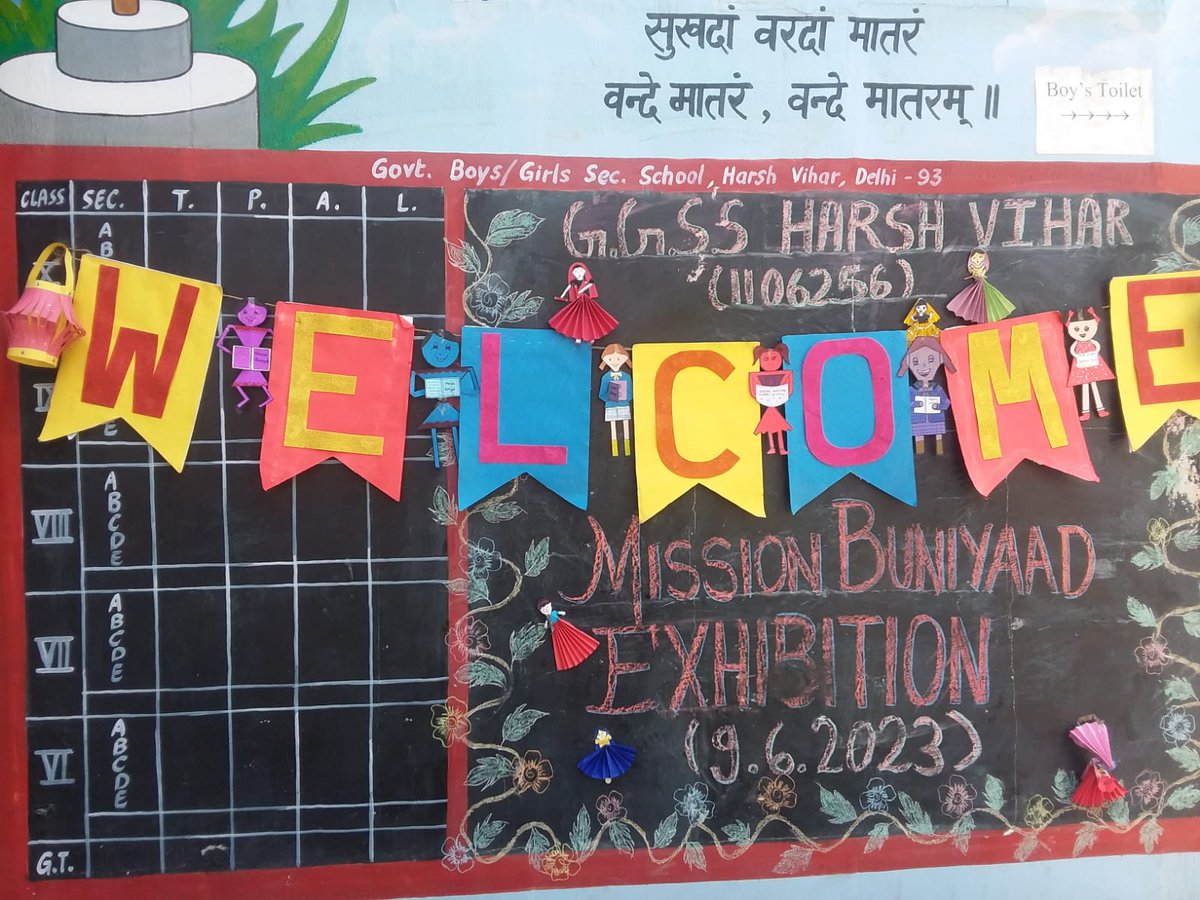 सुखदां वरदां मातरं
वन्दे मातरं, वन्दे मातरम् ॥
Boy's Toilet
→→→→
Govt. Boys/Girls Sec. School, Harsh Vihar, Delhi - 93
CLASS SEC. T. P. A. L.
A
B
E
VIII A B C D E
VII A B C D E
VI A B C D E
G.T.
G.G.S.S HARSH VIHAR
(1106256)
WELCOME
MISSION BUNIYAAD
EXHIBITION
(9.6.2023)